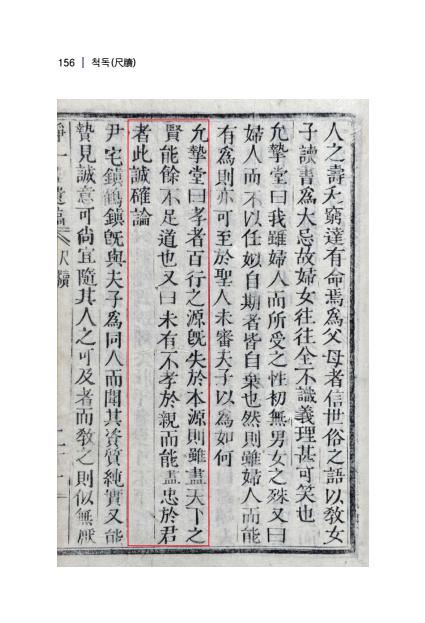 156 | 척독(尺牘)
人之壽夭窮達有命焉爲父母者信世俗之語以敎女
子讀書爲大忌故婦女往往全不識義理甚可笑也
允摯堂曰我雖婦人而所受之性初無男女之殊又曰
婦人而不以任姒自期者皆自棄也然則雖婦人而能
有爲則亦可至於聖人未審夫子以爲如何
允摯堂曰孝者百行之源旣失於本源則雖盡天下之
賢能餘不足道也又曰未有不孝於親而能盡忠於君
者此誠確論
尹宅鎭鶴鎭旣與夫子爲同人而聞其資質純實又能
贄見誠意可尙宜隨其人之可及者而敎之則似無厭
尺牘